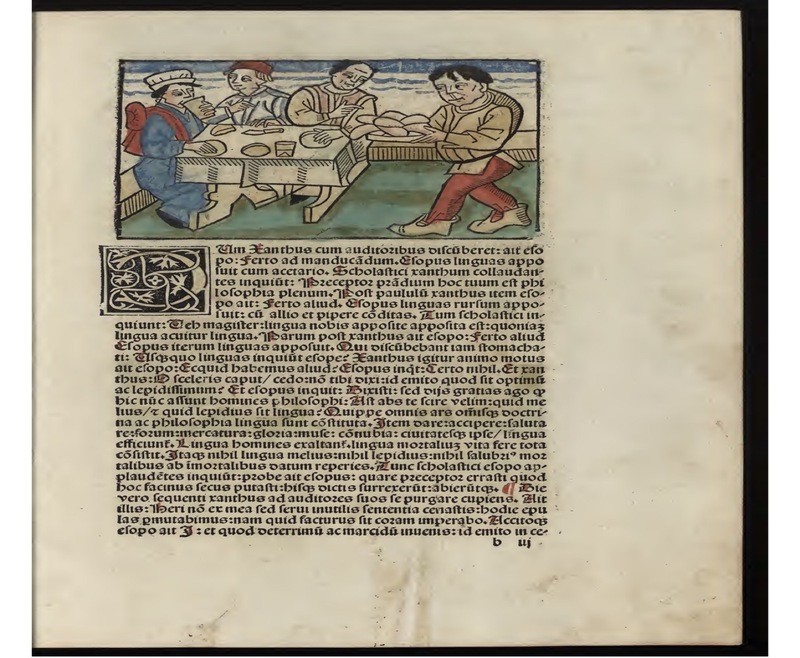 Um Xanthus cum auditoribus discūberet: ait eso
po: ferto ad manducādum. Esopus linguas appo
suit cum acetario. Scholastici xanthum collaudan-
tes inquiūt: Preceptor prādium hoc tuum est phi
losophia plenum. Post paululū xanthus item eso-
po ait: ferto aliud. Esopus linguas rursum appo-
suit: cū allio et pipere cōditas. Tum scholastici in-
quiunt: Teh magister: lingua nobis apposite apposita est: quoniaꝫ
lingua acuitur lingua. Parum post xanthus ait esopo: ferto aliud
Esopus iterum linguas apposuit. Qui discūbebant iam stomacha-
ti: Usqꝫquo linguas inquiūt esope? Xanthus igitur animo motus
ait esopo: Ecquid habemus aliud? Esopus inqͥt: Certo nihil. Et xan
thus: O sceleris caput/ cedo: nō tibi dixi: id emito quod sit optimū
ac lepidissimum? Et esopus inquit: Dixisti: sed dijs gratias ago ꝙ
hic nūc assunt homines philosophi: Ast abs te scire velim: quid me
lius/ ⁊ quid lepidius sit lingua? Quippe omnis ars omīsqꝫ doctri-
na ac philosophia lingua sunt cōstituta. Item dare: accipere: saluta
re: forum: mercatura: gloria: muse: cōnubia: ciuitatesqꝫ ipse/ lingua
efficiunt̄. Lingua homines exaltant̄. lingua mortaliuꝫ vita fere tota
cōsistit. Itaqꝫ nihil lingua melius: nihil lepidius: nihil salubriꝰ mor
talibus ab īmortalibus datum reperies. Tunc scholastici esopo ap-
plaudētes inquiūt: probe ait esopus: quare preceptor errasti quod
hoc facinus secus putasti: hisqꝫ dictis surrexerūt: abierūtqꝫ. ¶ Die
vero sequenti xanthus ad auditores suos se purgare cupiens. Ait
illis: Heri nō ex mea sed serui inutilis sententia cenastis: hodie epu
las ꝑmutabimus: nam quid facturus sit coram imperabo. Accitoqꝫ
esopo ait I: et quod deterrimū ac marcidū inuenis: id emito in ce-
b iij